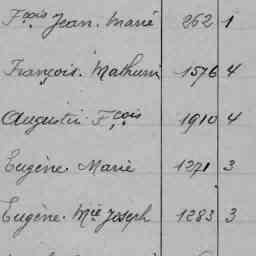 Fçois Jean. Marie 262 1
François. Mathurin 1576 4
Augustin Fçois 1910 4
Eugène. Marie 1271 3
Eugène. Mie Joseph 1283 3